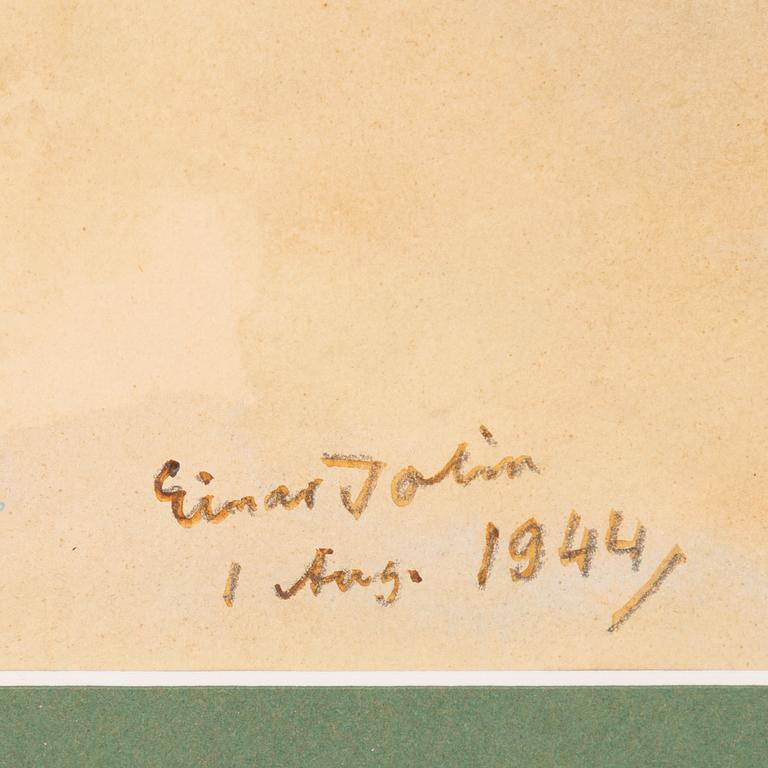 Einar Jolin
1 Aug. 1944/